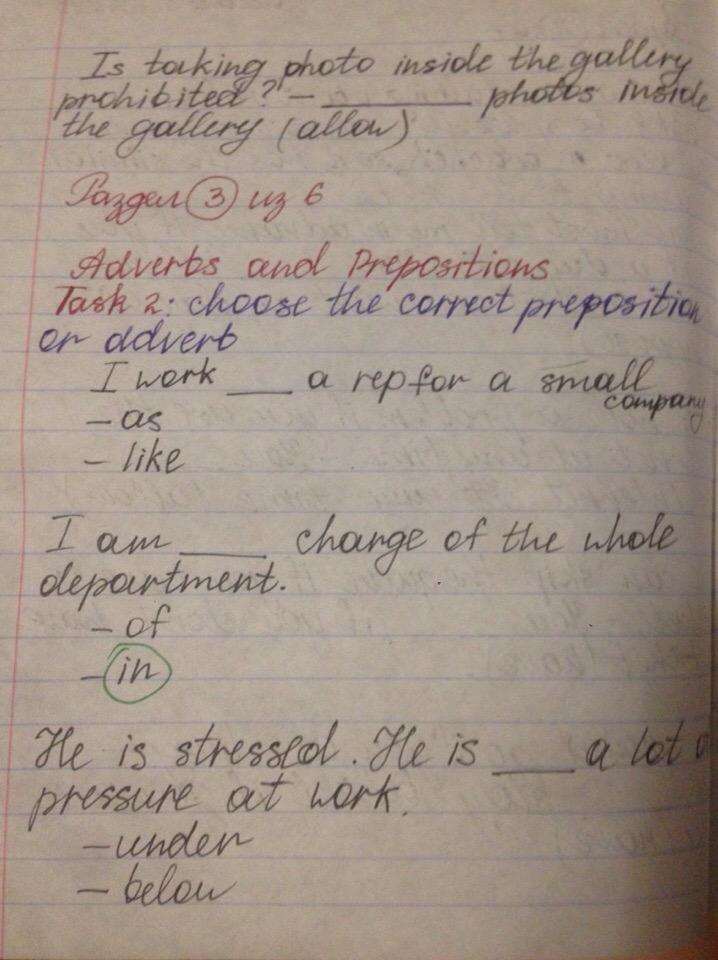 Is taking photo inside the gallery
prohibited? – ________ photos inside
the gallery (allow)
Раздел 3 из 6
Adverbs and Prepositions
Task 2: choose the correct preposition
or adverb
I work ___ a rep for a small
company
– as
– like
I am ____ change of the whole
department.
– of
– in
He is stressed. He is ____ a lot o
pressure at work.
– under
– below